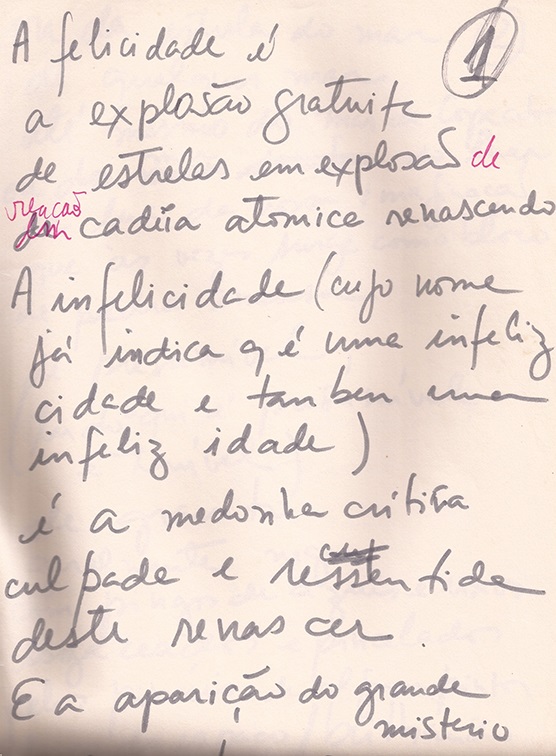 1
A felicidade é
a explosão gratuita
de estrelas em explosão de
reação
em cadeia atomica renascendo
A infelicidade (cujo nome
já indica q é uma infeliz
cidade e tambem uma
infeliz idade)
é a medonha
culpada e ressentida
deste renascer
E a aparição do grande
misterio